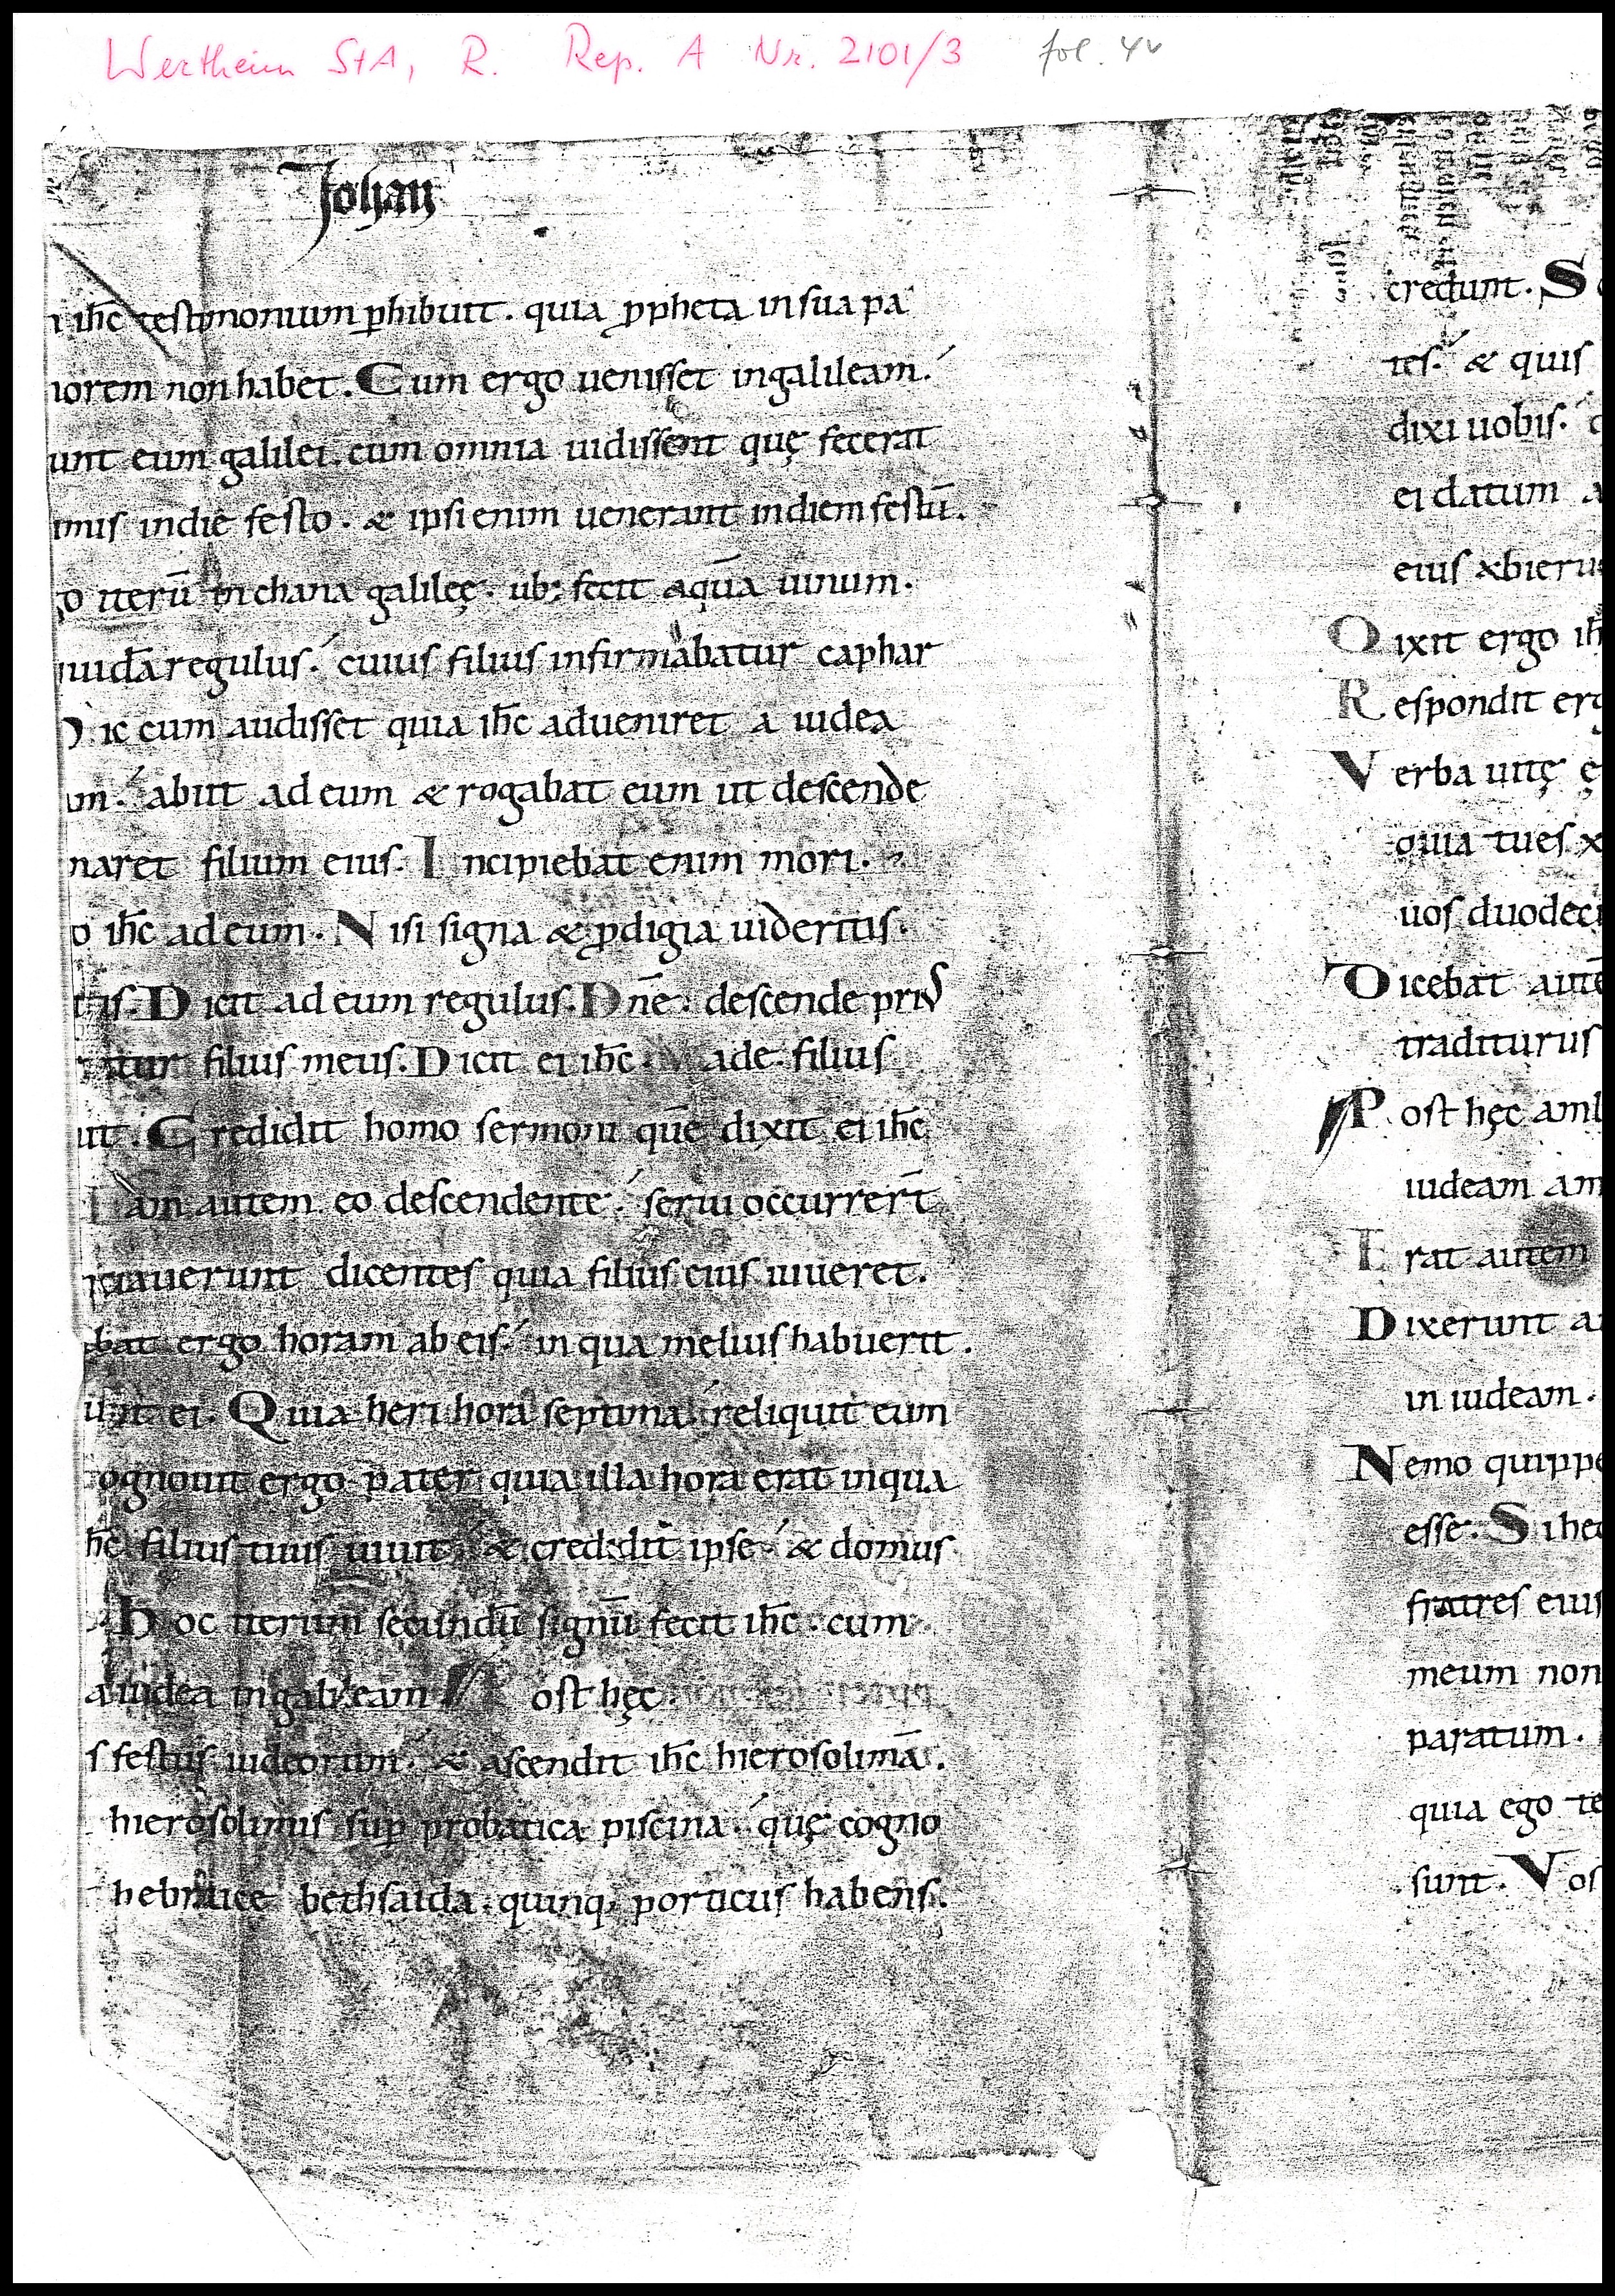 Wertheim StA, R. Rep. A Nr. 2101/3 fol. 4v
Johan
i ih̄c testimonium ꝑhibuit. quia ꝓpheta in sua pa
norem non habet. Cum ergo uenisset in galileam.
unt eum galilei. cum omnia uidissent quę fecerat
imis in die festo. & ipsi enim uenerant in diem festū.
go iterū in chana galileę. ub; fecit aquā uinum.
quidā regulus. cuius filius infirmabatur caphar
Hic cum audisset quia ih̄c adueniret a iudea
am. abiit ad eum & rogabat eum ut descende
naret filium eius. Incipiebat enim mori.
o ih̄c ad eum. Nisi signa & ꝓdigia uideritis.
itis. Dicit ad eum regulus. Dn̄e. descende prius
atur filius meus. Dicit ei ih̄c. Vade. filius
uit. Credidit homo sermoni quē dixit ei ih̄c
Iam autem eo descendente. serui occurrer̄t
ntiauerunt dicentes quia filius eius uiueret.
gabat ergo horam ab eis. in qua melius habuerit.
unt ei. Quia heri hora septima. reliquit eum
ognouit ergo pater quia illa hora erat in qua
ih̄c filius tuus uiuit. & credidit ipse. & domus
Hoc iterum secundū signū fecit ih̄c. cum
a iudea in galileam Post hęc.
s festus iudeorum. & ascendit ih̄c hierosolimā.
hierosolimis suꝑ probatica piscina. quę cogno
hebraice bethsaida. quinq; porticus habens.
credunt. S
tes. & quis
dixi uobis.
ei datum a
eius abieru
Dixit ergo ih̄
Respondit erg
Verba uitę
quia tu es x
uos duodeci
Dicebat autē
traditurus
Post hęc amb
iudeam am
Erat autem
Dixerunt a
in iudeam.
Nemo quippe
esse. Si hec
fratres eius
meum non
paratum.
quia ego te
sunt. Vos